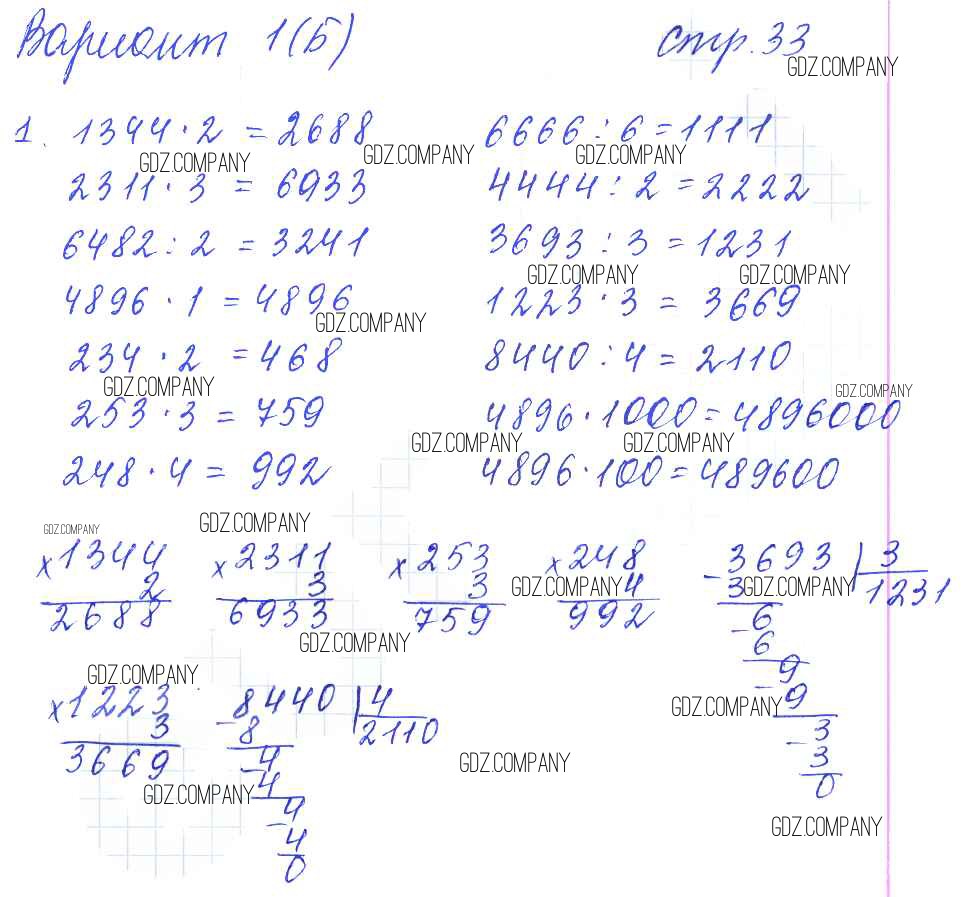 Вариант 1(Б) стр. 33
GDZ.COMPANY
1. 1344 · 2 = 2688 6666 : 6 = 1111
GDZ.COMPANY GDZ.COMPANY GDZ.COMPANY
2311 · 3 = 6933 4444 : 2 = 2222
6482 : 2 = 3241 3693 : 3 = 1231
GDZ.COMPANY GDZ.COMPANY
4896 · 1 = 4896 1223 · 3 = 3669
GDZ.COMPANY
234 · 2 = 468 8440 : 4 = 2110
GDZ.COMPANY GDZ.COMPANY
253 · 3 = 759 4896 · 1000 = 4896000
GDZ.COMPANY GDZ.COMPANY
248 · 4 = 992 4896 · 100 = 489600
GDZ.COMPANY GDZ.COMPANY
×1344 ×2311 ×253 ×248 -3693 | 3
2 3 3 4 3 1231
GDZ.COMPANY GDZ.COMPANY
2688 6933 759 992 -6
GDZ.COMPANY 6
GDZ.COMPANY -9
×1223 -8440 | 4 9
GDZ.COMPANY
3 8 2110 -3
3669 -4 3
GDZ.COMPANY
GDZ.COMPANY 4 0
-4
GDZ.COMPANY
4
0